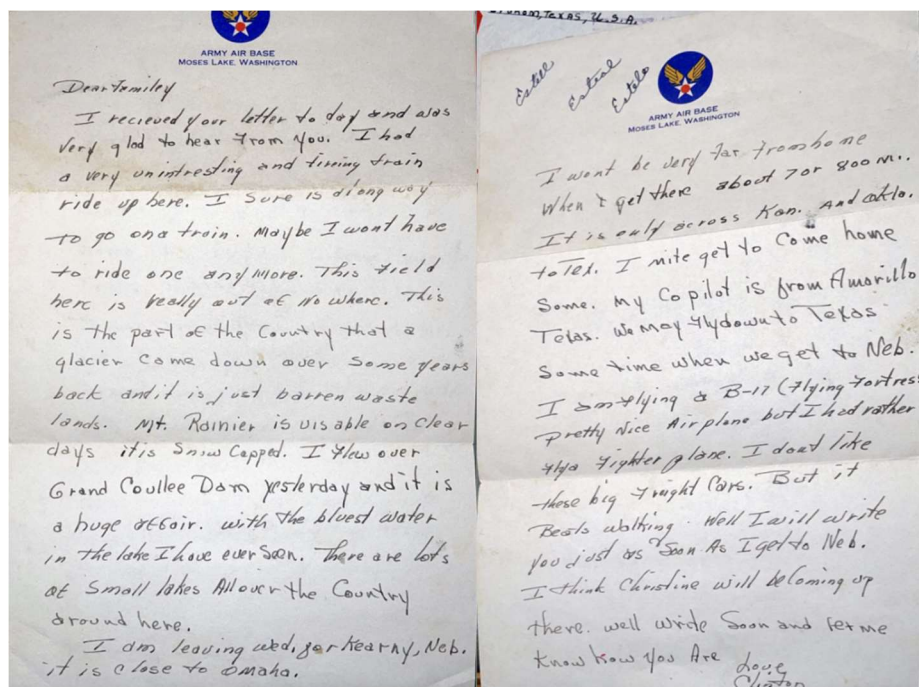 ARMY AIR BASE
MOSES LAKE, WASHINGTON
Dear Familey
I recieved your letter to day and was
very glad to hear from you. I had
a very unintresting and tireing train
ride up here. I Sure is along way
to go on a train. Maybe I wont have
to ride one any more. This Field
here is really out of No where. This
is the part of the Country that a
glacier Come down over Some years
back and it is just barren waste
lands. Mt. Rainier is visable on Clear
days it is Snow Capped. I flew over
Grand Coullee Dam yesterday and it is
a huge affair. with the bluest water
in the lake I have ever Seen. There are lots
of Small lakes All over the Country
around here.
I am leaving wed, for Kearny, Neb.
it is close to omaha.
TEXAS, U.S.A.
Estell
Esteal
Estele
ARMY AIR BASE
MOSES LAKE, WASHINGTON
I wont be very far from home
When I get there about 7 or 800 mi..
It is only across Kan. And okla.
to Tex. I mite get to Come home
Some. My Copilot is from Amorillo
Texas. We May fly down to Texas
Some time when we get to Neb.
I am flying a B-17 (Flying Fortress
pretty Nice Air plane but I had rather
fly a Fighter plane. I dont like
these big Frieght Cars. But it
Beats walking. Well I will write
you just as Soon As I get to Neb.
I think Christine will be Coming up
there. well write Soon and let me
Know how You Are Love
Clinton